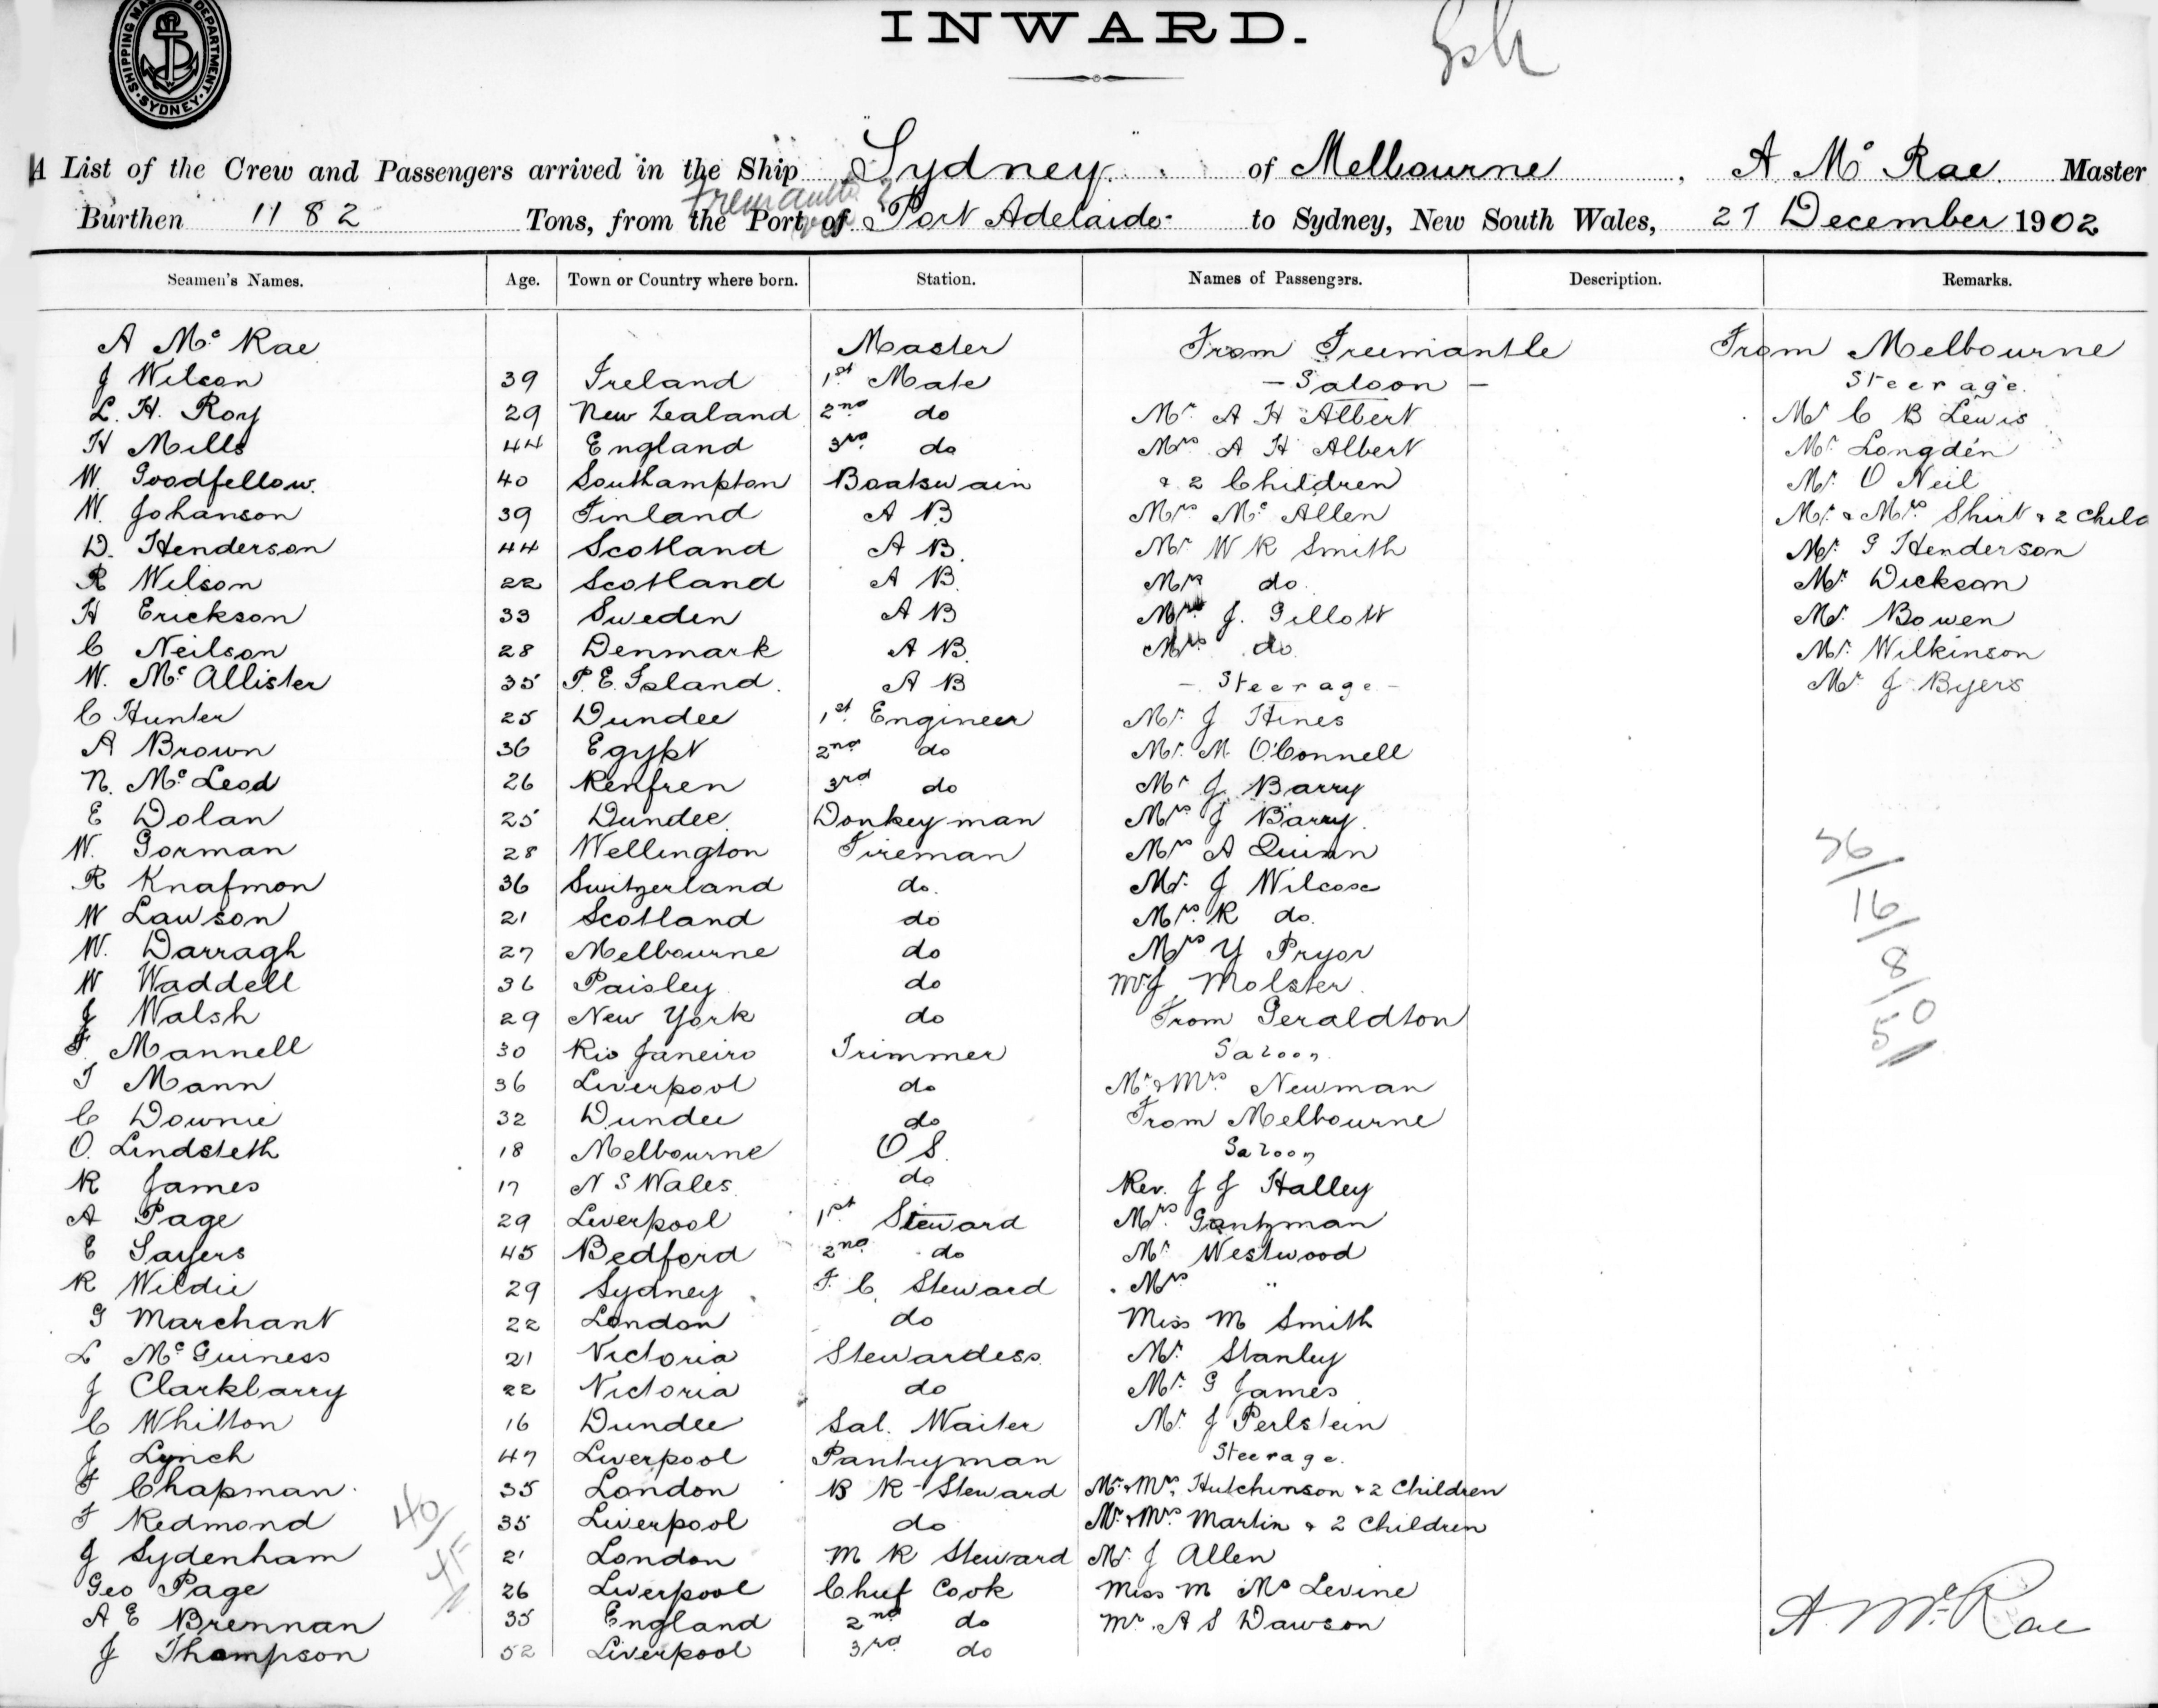 SHIPPING MASTER'S DEPARTMENT. SYDNEY.
INWARD.
A List of the Crew and Passengers arrived in the Ship Sydney of Melbourne, A Mc Rae. Master
Burthen 1182 Tons, from the Port of Fremantle Port Adelaide to Sydney, New South Wales, 27 December 1902
Seamen's Names. Age. Town or Country where born. Station. Names of Passengers. Description. Remarks.
A Mc Rae Master From Freemantle From Melbourne
J Wilson 39 Ireland 1st Mate - Saloon - Steerage.
L. H. Roy 29 New Zealand 2nd do Mr A H Albert Mr C B Lewis
H Mills 44 England 3rd do Mrs A H Albert Mr Longden
W. Goodfellow. 40 Southampton Boatswain & 2 Children Mr O Neil
W. Johanson 39 Finland A B Mrs Mc Allen Mr & Mrs Shirt & 2 Child
D. Henderson 44 Scotland A B. Mr W R Smith Mr G Henderson
R Wilson 22 Scotland A B. Mrs do. Mr Dickson
H Erickson 33 Sweden A B J. Gillott Mr Bowen
C Neilson 28 Denmark A B. Mrs do. Mr Wilkinson
W. Mc Allister 35 P. E. Island. A B - Steerage - Mr J Byers
C Hunter 25 Dundee 1st Engineer Mr J Hines
A Brown 36 Egypt 2nd do Mr M. O'Connell
N. McLeod 26 Renfren 3rd do Mr J Barry
E Dolan 25 Dundee Donkeyman Mrs J Barry.
W. Gorman 28 Wellington Fireman Mrs A Quinn
R Knafmon 36 Switzerland do. Mr J Wilcox
W Lawson 21 Scotland do Mrs R do.
W. Darragh 27 Melbourne do Mrs Y Pryor
W Waddell 36 Paisley do Mr J Molster
J Walsh 29 New York do From Geraldton
F. Mannell 30 Rio Janeiro Trimmer Saloon
T Mann 36 Liverpool do Mr & Mrs Newman
C Downie 32 Dundee do From Melbourne
O. Lindsteth 18 Melbourne O S. Saloon
R James 17 N S Wales do Rev. J J Halley
A Page 29 Liverpool 1st Steward Mrs Gantzman
E Sayers 45 Bedford 2nd do Mr Westwood
R Wildie 29 Sydney F. C. Steward Mrs "
G Marchant 22 London do Miss M Smith
L McGuiness 21 Victoria Stewardess. Mr Stanley
J Clarkbarry 22 Victoria do Mr G James
C Whitton 16 Dundee Sal. Waiter Mr J Perlstein
J Lynch 47 Liverpool Pantryman Steerage.
F Chapman 35 London B R Steward Mr & Mrs Hutchinson & 2 Children
F Redmond 35 Liverpool do Mr & Mrs Martin & 2 Children
J Sydenham 21 London M R Steward Mr J Allen
Geo Page 26 Liverpool Chief Cook Miss M Mc Levine
A E Brennan 35 England 2nd do Mr A S Dawson
J Thompson 52 Liverpool 3rd do
36
16
8
0
51
40
A. McRae